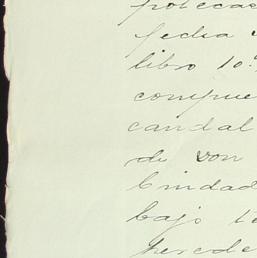 potecas
fecha
libro 10º
compue
caudal
de son
Cindad
bajo te
herede